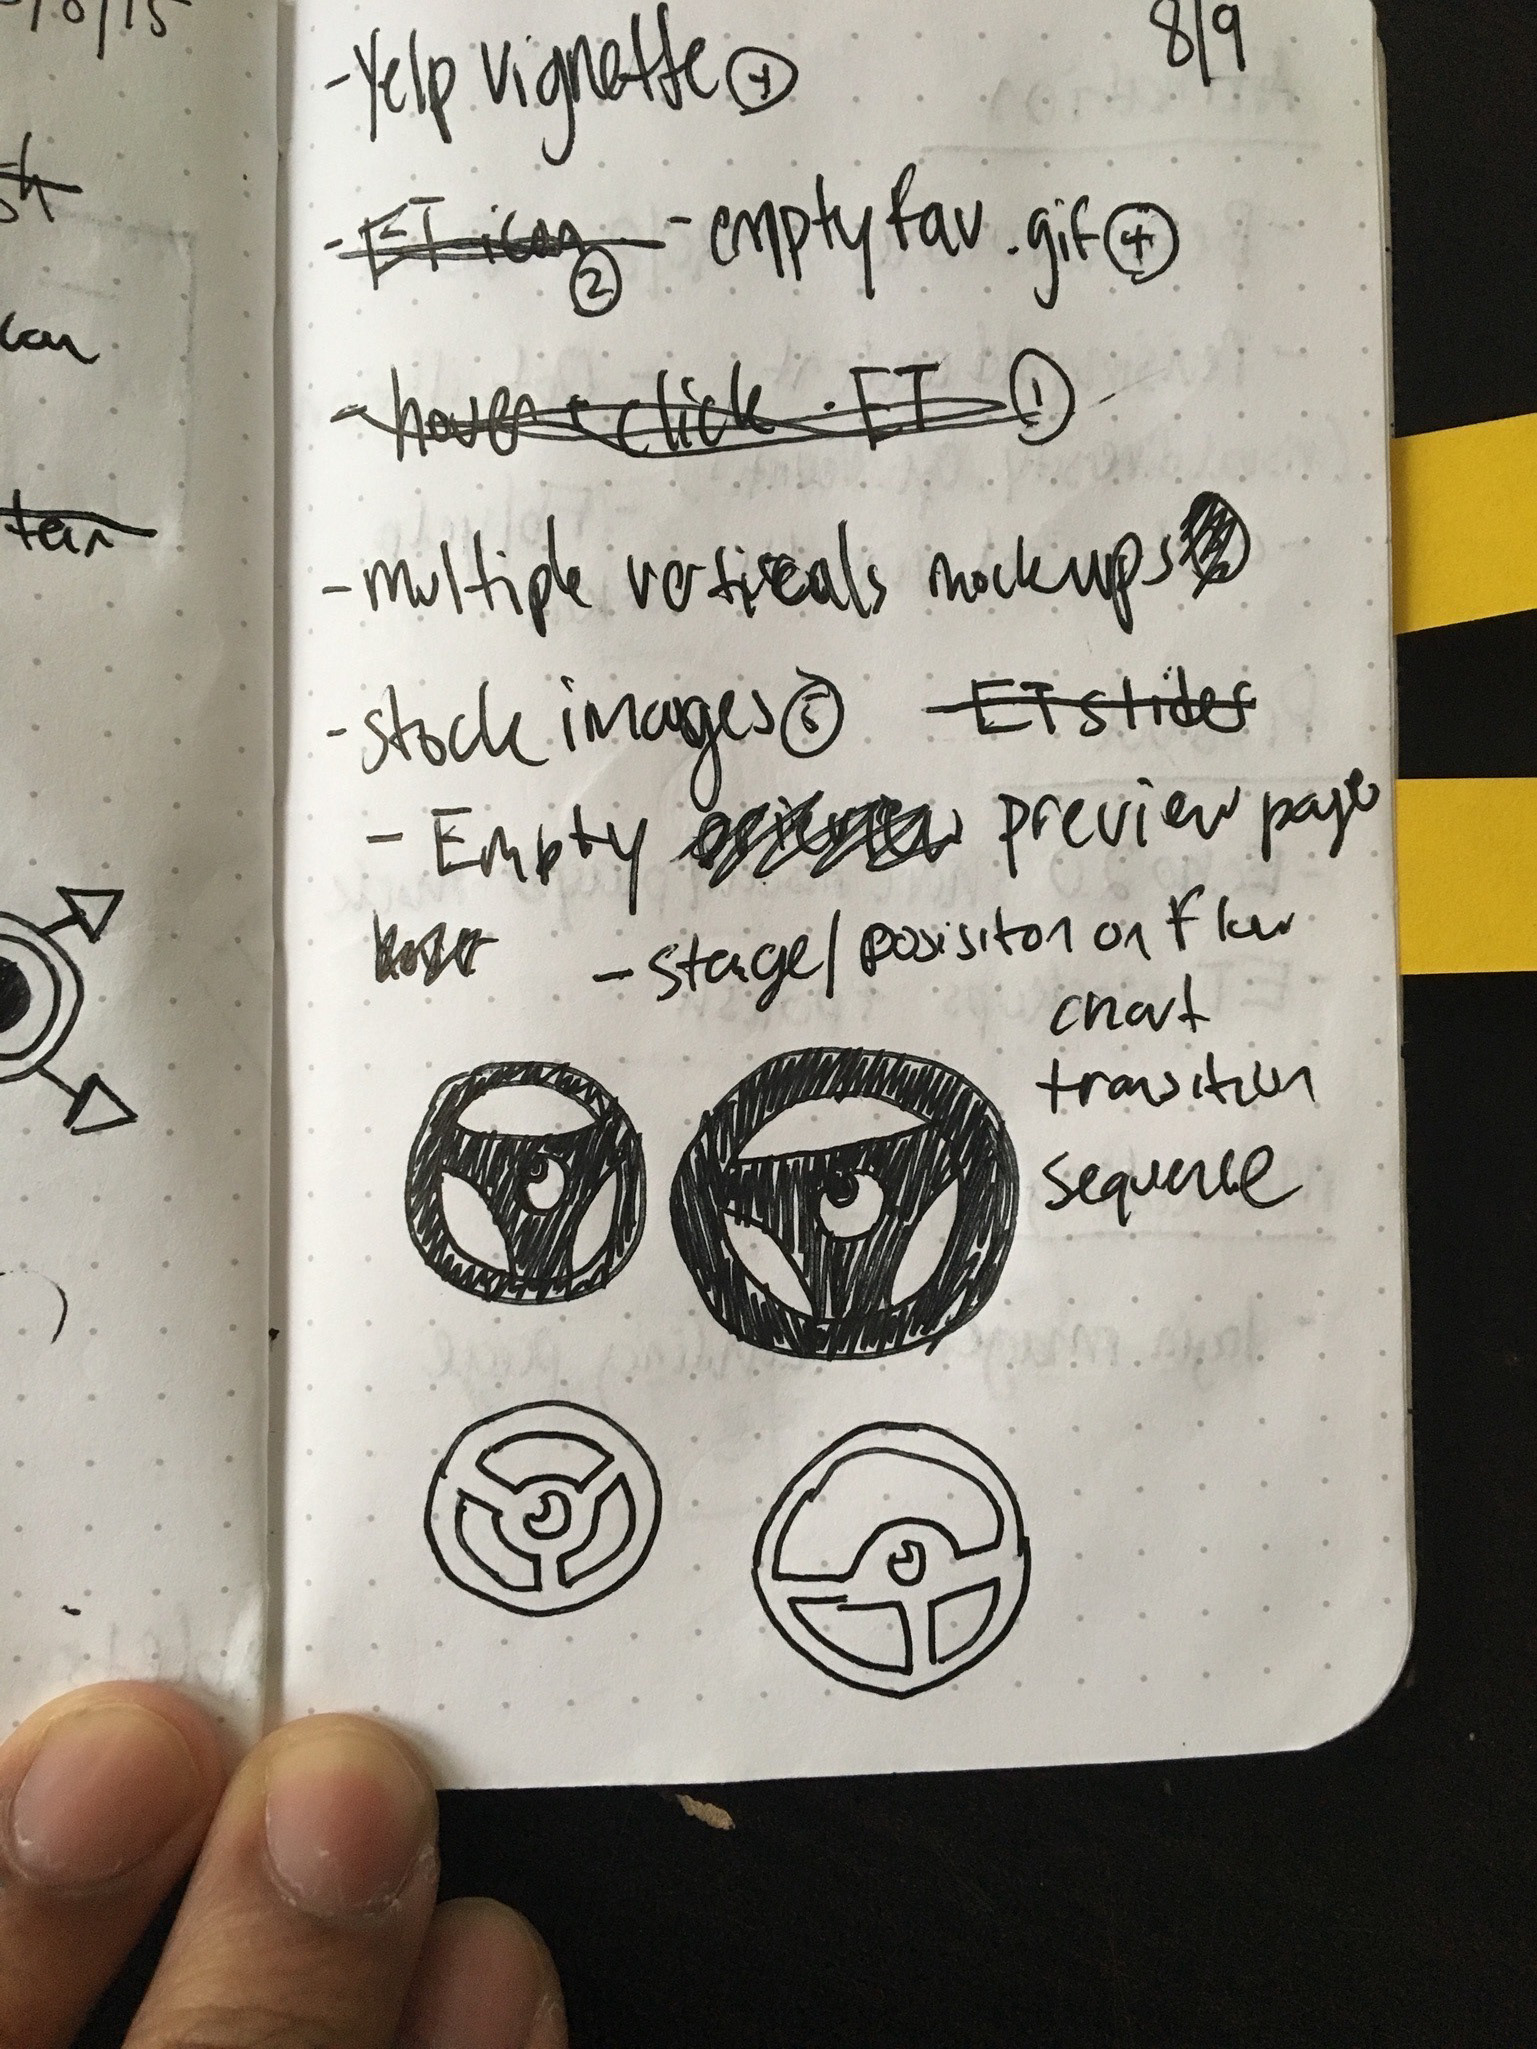 10/15
8/9
- Yelp vignette 4
- ET icon 2 - empty fav .gif 4
- hover + click . ET 1
- multiple verticals mockups
- stock images 5 ET slider
- Empty preview page
- stage/posisiton on flow
chart
transition
sequence